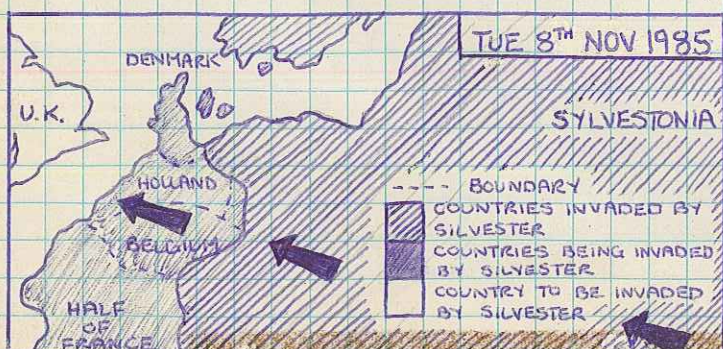 TUE 8TH NOV 1985
DENMARK
U.K.
SYLVESTONIA
HOLLAND
BELGIUM
HALF
OF
FRANCE
BOUNDARY
COUNTRIES INVADED BY
SILVESTER
COUNTRIES BEING INVADED
BY SILVESTER
COUNTRY TO BE INVADED
BY SILVESTER